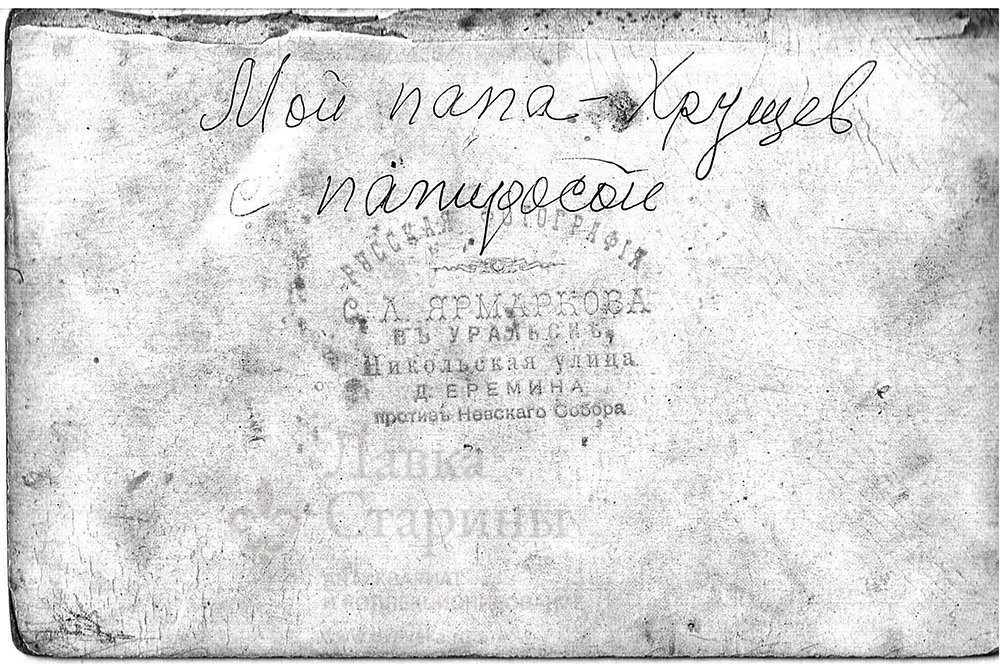 Мой папа – Хрущев
с папиросой
РУССКАЯ ФОТОГРАФІЯ
С. А. ЯРМАРКОВА
ВЪ УРАЛЬСКѢ,
Никольская улица
Д. ЕРЕМИНА
противъ Невскаго Собора
Лавка
Старины
АНТИКВАРИАТ
И КОЛЛЕКЦИОНИРОВАНИЕ